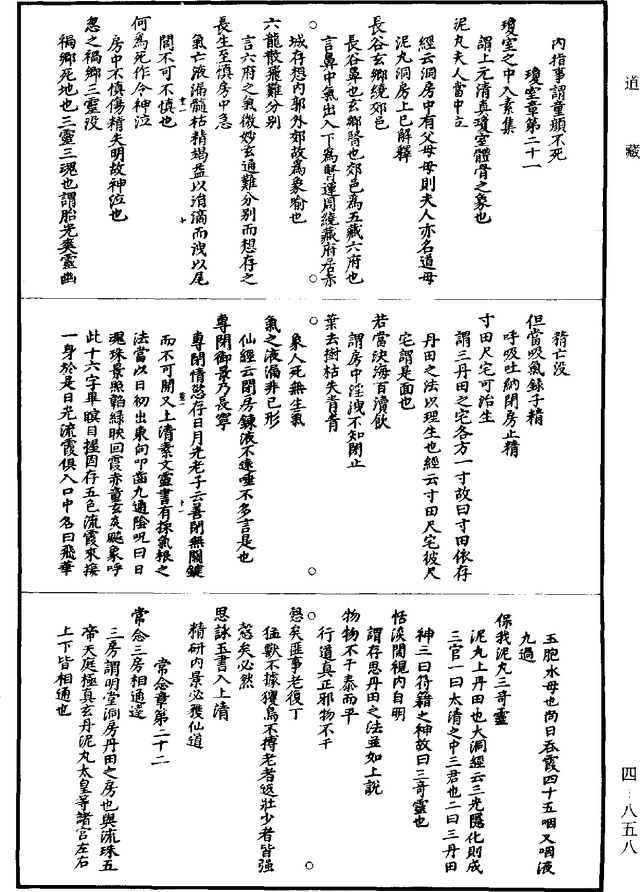 道藏
內指事謂童顏不死
瓊室章第二十一
瓊室之中八素集
謂上元清真瓊室體骨之象也
泥丸夫人當中立
經云洞房中有父母母則夫人亦名道母
泥丸洞房上已解釋
長谷玄鄉繞郊邑
長谷鼻也玄鄉腎也郊邑為五藏六府也
言鼻中氣出入下為腎運周繞藏府居赤
城存想內郭外郊故為象喻也
六龍散飛難分別
言六府之氣微妙玄通難分別而想存之
長生至慎房中急
氣亡液漏髓枯精竭益以涓滴而洩以尾
閭不可不慎也
何為死作令神泣
房中不慎傷精失明故神泣也
忽之禍鄉三靈沒
禍鄉死地也三靈三魂也謂胎光爽靈幽
精亡沒
但當吸氣錄子精
呼吸吐納閉房止精
寸田尺宅可治生
謂三丹田之宅各方一寸故曰寸田依存
丹田之法以理生也經云寸田尺宅彼尺
宅謂是面也
若當決海百瀆飲
謂房中淫洩不知閉止
葉去樹枯失青青
象人死無生氣
氣亡液漏非己形
仙經云閉房鍊液不遠唾不多言是也
專閉御景乃長寧
專閉情慾存日月光老子云善閉無關鍵
而不可開又上清素文靈書有採氣根之
法當以日初出東向叩齒九通陰呪曰日
魂珠景照韜綠映回霞赤童玄炎飈象呼
此十六字畢瞑目握固存五色流霞來接
一身於是日光流霞俱入口中名曰飛華
玉胞水母也向日吞霞四十五咽又咽液
九過
保我泥丸三奇靈
泥丸上丹田也大洞經云三光隱化則成
三官一曰太清之中三君也二曰三丹田
神三曰符籍之神故曰三奇靈也
恬淡閑視內自明
謂存思丹田之法並如上說
物物不干泰而平
行道真正邪物不干
慤矣匪事老復丁
猛獸不據攫鳥不搏老者返壯少者皆強
慤矣必然
思詠玉書入上清
精研內景必獲仙道
常念章第二十二
常念三房相通達
三房謂明堂洞房丹田之房也與流珠五
帝天庭極真玄丹泥丸太皇等諸宮左右
上下皆相通也
四—八五八